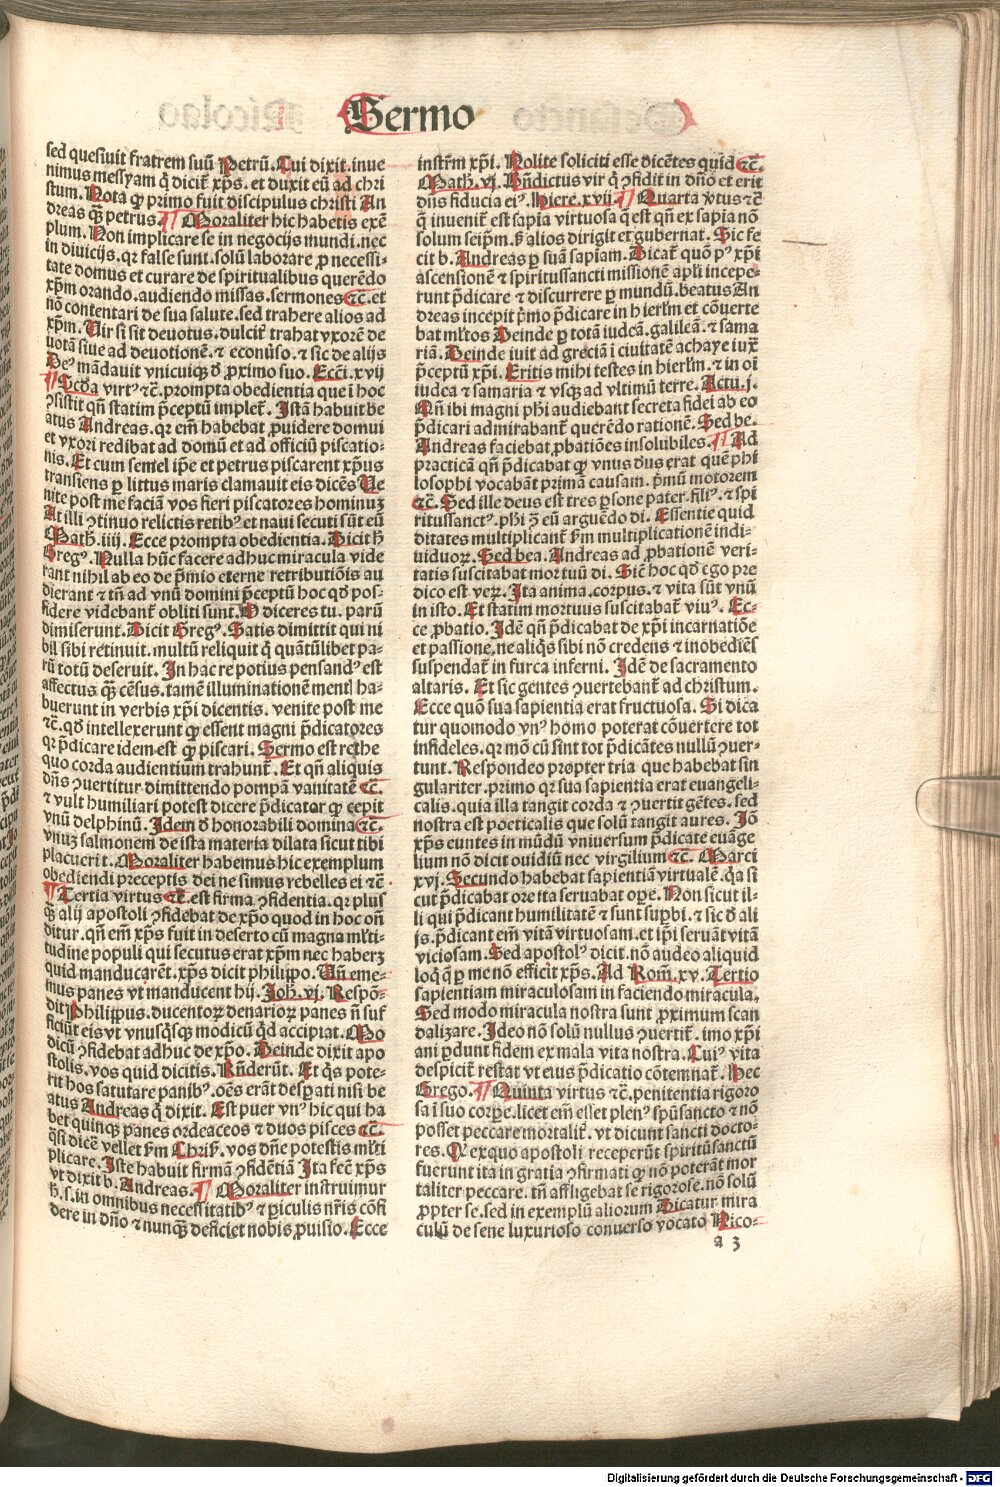 Sermo
sed quesiuit fratrem suū Petrū. Cui dixit. inue
nimus messyam q̄ dicit᷑ xp̄s. et duxit eū ad chri
stum. Nota ꝙ primo fuit discipulus christi An
dreas qȝ petrus. ¶ Moraliter hic habetis exē
plum. Non implicare se in negocijs mundi. nec
in diuicijs. qꝛ false sunt. solū laborare ꝓ necessi-
tate domus et curare de spiritualibus querēdo
xp̄m orando. audiendo missas. sermones ⁊c̄. et
nō contentari de sua salute. sed trahere alios ad
xp̄m. Uir si sit deuotus. dulcit᷑ trahat vxorē de
uotā siue ad deuotionē. ⁊ econūso. ⁊ sic de alijs
Deꝰ mādauit vnicuiqȝ ď proximo suo. Ecc̄i. xvij
¶ Scďa virtꝰ ⁊c̄. prompta obedientia que ī hoc
ꝯsistit qn̄ statim p̄ceptū implet᷑. Istā habuit be
atus Andreas. qꝛ em̄ habebat ꝓuidere domui
et vxori redibat ad domū et ad officiū piscatio-
nis. Et cum semel ip̄e et petrus piscarent xp̄us
transiens ꝑ littus maris clamauit eis dicēs Ue
nite post me faciā vos fieri piscatores hominuȝ
At illi ꝯtinuo relictis retibꝰ et naui secuti sūt eū
Math̄. iiij. Ecce prompta obedientia. Dicit h̄
Gregꝰ. Nulla hūc facere adhuc miracula vide
rant nihil ab eo de p̄mio eterne retributiōis au
dierant ⁊ tn̄ ad vnū domini p̄ceptū hoc qď pos-
sidere videbant᷑ obliti sunt. O diceres tu. parū
dimiserunt. Dicit Gregꝰ. Satis dimittit qui ni
hil sibi retinuit. multū reliquit q̄ quātūlibet pa-
rū totū deseruit. In hac re potius pensandꝰ est
affectus qȝ cēsus. tamē illuminationē mentꝭ ha-
buerunt in verbis xp̄i dicentis. venite post me
⁊c̄. qď intellexerunt ꝙ essent magni p̄dicatores
qꝛ p̄dicare idem est ꝙ piscari. Sermo est rethe
quo corda audientium trahunt᷑. Et qn̄ aliquis
dn̄s ꝯuertitur dimittendo pompā vanitatē ⁊c̄.
⁊ vult humiliari potest dicere p̄dicator ꝙ cepit
vnū delphinū. Idem ď honorabili domina ⁊c̄.
vnuȝ salmonem de ista materia dilata sicut tibi
placuerit. Moraliter habemus hic exemplum
obediendi preceptis dei ne simus rebelles ei ⁊c̄
¶ Tertia virtus ⁊c̄. est firma ꝯfidentia. qꝛ plus
qȝ alij apostoli ꝯfidebat de xp̄o quod in hoc on̄
ditur. qn̄ em̄ xp̄s fuit in deserto cū magna ml̄ti-
tudine populi qui secutus erat xp̄m nec haberȝ
quid manducarēt. xp̄s dicit philippo. Un̄ eme-
mus panes vt manducent hij. Joh̄. vj. Respō-
dit Philippus. ducentoꝝ denarioꝝ panes n̄ suf
ficiūt eis vt vnusq̄sqȝ modicū q̄d accipiat. Mo
dicū ꝯfidebat adhuc de xp̄o. Deinde dixit apo
stolis. vos quid dicitis. Rn̄derūt. Et q̄s pote-
rit hos saturare panibꝰ. oēs erāt despati nisi be
atus Andreas q̄ dixit. Est puer vnꝰ hic qui ha
bet quinqȝ panes ordeaceos ⁊ duos pisces ⁊c̄.
q̄si dicē vellet ẜm Chris̄. vos dn̄e potestis ml̄ti
plicare. Iste habuit firmā ꝯfidētiā Ita fec̄ xp̄s
vt dixit b. Andreas. ¶ Moraliter instruimur
h̄. s. in omnibus necessitatibꝰ ⁊ ꝑiculis nr̄is cōfi
dere in dn̄o ⁊ nunqȝ deficiet nobis ꝓuisio. Ecce
instr̄m xp̄i. Nolite soliciti esse dicētes quid ⁊c̄.
Math̄. vj. Bn̄dictus vir q̄ ꝯfidit in dn̄o et erit
dn̄s fiducia eiꝰ. Hiere. xvij. ¶ Quarta v̓tus ⁊c̄
q̄ inuenit᷑ est sapia virtuosa q̄ est qn̄ ex sapia nō
solum seip̄m. s̄ alios dirigit et gubernat. Sic fe
cit b. Andreas ꝑ suā sapiam. Dicat᷑ quō pꝰ xp̄i
ascensionē ⁊ spiritussancti missionē apl̄i incepe-
runt p̄dicare ⁊ discurrere ꝑ mundū. beatus An
dreas incepit p̄mo p̄dicare in hierl̄m et cōuerte
bat ml̄tos Deinde ꝑ totā iudeā. galileā. ⁊ sama
riā. Deinde iuit ad greciā ī ciuitatē achaye iux̄
p̄ceptū xp̄i. Eritis mihi testes in hierl̄m. ⁊ in oī
iudea ⁊ samaria ⁊ vsqȝ ad vltimū terre. Actu. j.
Qn̄ ibi magni ph̄i audiebant secreta fidei ab eo
p̄dicari admirabant᷑ querēdo rationē. Sed be.
Andreas faciebat ꝓbatiōes insolubiles. ¶ Ad
practicā qn̄ p̄dicabat ꝙ vnus dn̄s erat quē phi
losophi vocabāt primā causam. p̄mū motorem
⁊c̄. Sed ille deus est tres ꝑsone pater. filiꝰ. ⁊ spi
ritussanctꝰ. ph̄i ꝯ̄ eū arguēdo di. Essentie quid
ditates multiplicant᷑ ẜm multiplicationē indi-
uiduoꝝ. Sed bea. Andreas ad ꝓbationē veri-
tatis suscitabat mortuū di. Sic̄ hoc qď ego pre
dico est veꝝ. Ita anima. corpus. ⁊ vita sūt vnū
in isto. Et statim mortuus suscitabat᷑ viuꝰ. Ec-
ce ꝓbatio. Idē qn̄ p̄dicabat de xp̄i incarnatiōe
et passione. ne aliq̄s sibi nō credens ⁊ inobediēs
suspendat᷑ in furca inferni. Idē de sacramento
altaris. Et sic gentes ꝯuertebant᷑ ad christum.
Ecce quō sua sapientia erat fructuosa. Si dica
tur quomodo vnꝰ homo poterat cōuertere tot
infideles. qꝛ mō cū sint tot p̄dicātes nullū ꝯuer-
tunt. Respondeo propter tria que habebat sin
gulariter. primo qꝛ sua sapientia erat euangeli-
calis. quia illa tangit corda ⁊ ꝯuertit gētes. sed
nostra est poeticalis que solū tangit aures. Iō
xp̄s euntes in mūdū vniuersum p̄dicate euāge
lium nō dicit ouidiū nec virgilium ⁊c̄. Marci
xvj. Secundo habebat sapientiā virtualē. q̄a si
cut p̄dicabat ore ita seruabat oꝑe. Non sicut il-
li qui p̄dicant humilitatē ⁊ sunt suꝑbi. ⁊ sic ď ali
js. p̄dicant em̄ vitā virtuosam. et ip̄i seruāt vitā
viciosam. Sed apostolꝰ dicit. nō audeo aliquid
loq̄ q̄ ꝑ me nō efficit xp̄s. Ad Rom̄. xv. Tertio
sapientiam miraculosam in faciendo miracula.
Sed modo miracula nostra sunt ꝓximum scan
dalizare. Ideo nō solū nullus ꝯuertit᷑. imo xp̄i
ani ꝑdunt fidem ex mala vita nostra. Cuiꝰ vita
despicit᷑ restat vt eius p̄dicatio cōtemnat᷑. Hec
Grego. ¶ Quinta virtus ⁊c̄. penitentia rigoro
sa ī suo corꝑe. licet em̄ esset plenꝰ spūsancto ⁊ nō
posset peccare mortalit᷑. vt dicunt sancti docto-
res. Qꝛ ex quo apostoli receperūt spiritūsanctū
fuerunt ita in gratia ꝯfirmati ꝙ nō poterāt mor
taliter peccare. tn̄ affligebat se rigorose. nō solū
ꝓpter se. sed in exemplū aliorum Dicatur mira
culū de sene luxurioso conuerso vocato Nico-
a 3
Digitalisierung gefördert durch die Deutsche Forschungsgemeinschaft - DFG